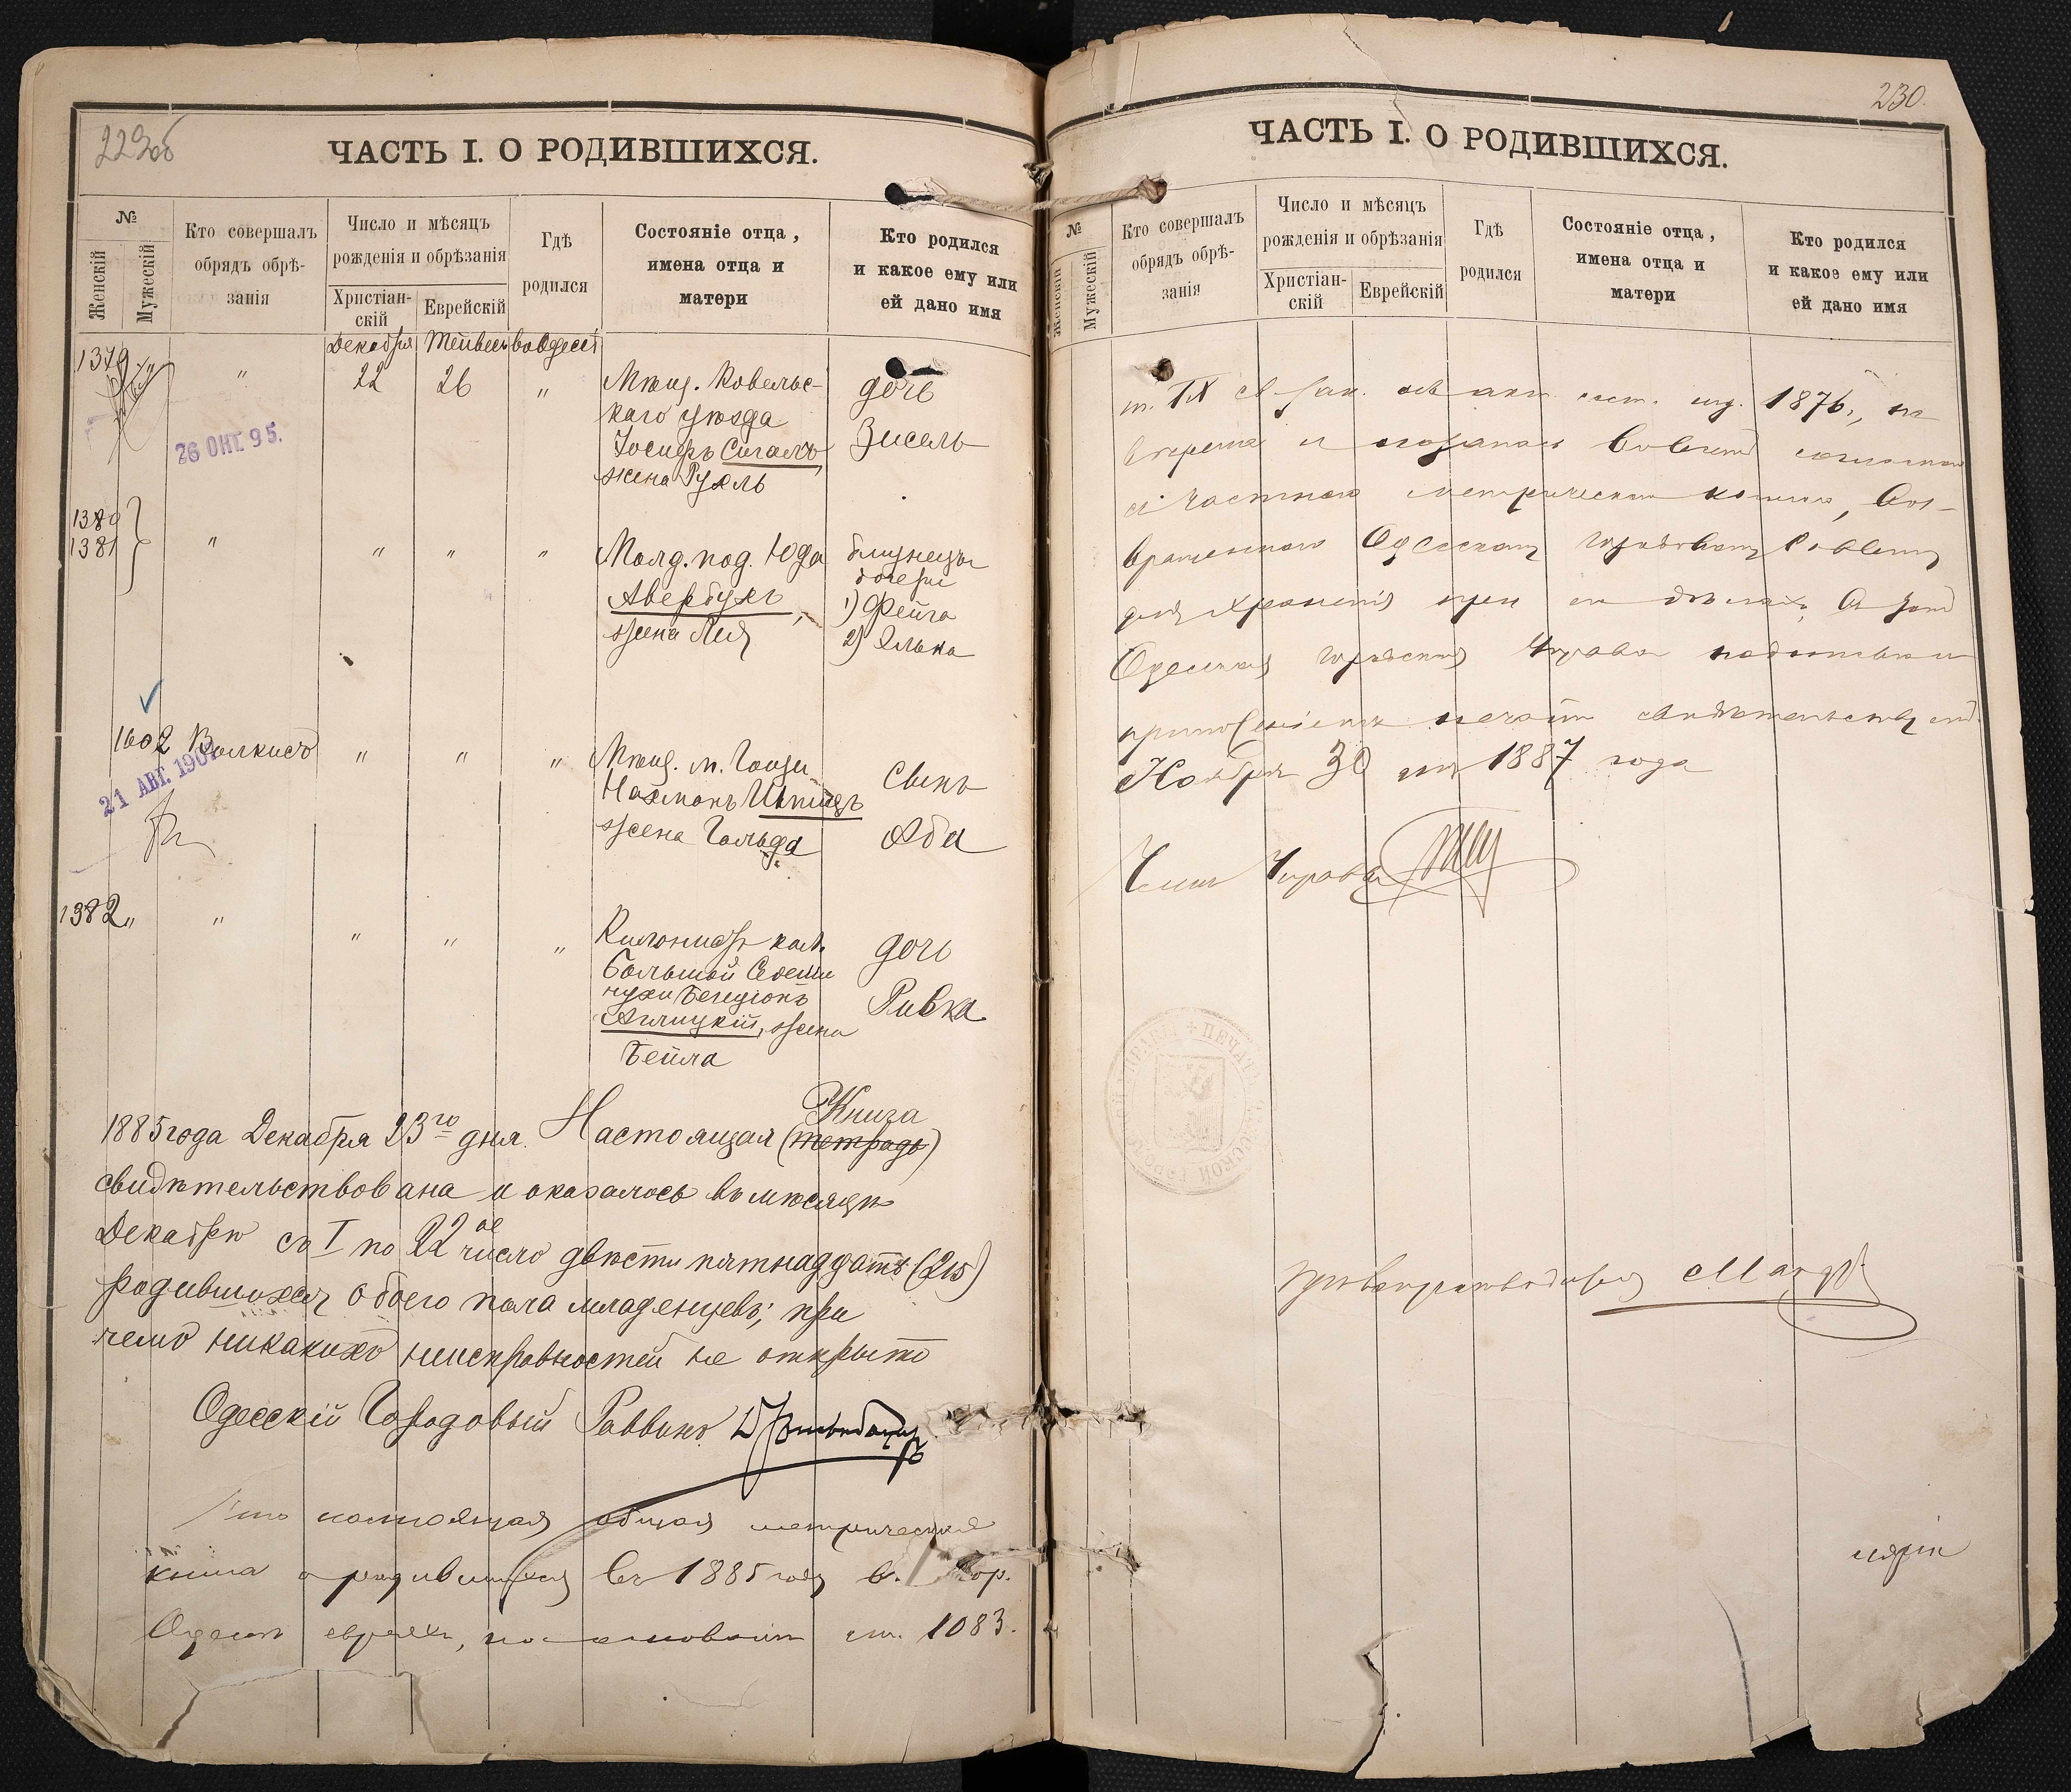 229об
ЧАСТЬ I. О РОДИВШИХСЯ.
№
Женскій
Мужескій
Кто совершалъ
обрядъ обрѣ-
занія
Число и мѣсяцъ
рожденія и обрѣзанія
Христіан-
скій
Еврейскій
Гдѣ
родился
Состояніе отца,
имена отца и
матери
Кто родился
и какое ему или
ей дано имя
Декабря Тейвесъ въ Одессѣ
1379 " 22 26 " Мѣщ. Ковельс-
каго уѣзда
Іосифъ Сигалъ,
жена Рухль
дочь
Зисель
26 ОКТ. 95.
1380
1381 " " " " Молд. под. Юда
Авербухъ,
жена Лея
близнецы
дочери
1) Фейга
2) Элька
1602 " " "
21 АВГ. 190
Мѣщ. м.
Нахманъ
жена Гольда
Сынъ
Аба
1382 " " " " " Колонистъ кол.
Большой Сейдеми
нухи Бенціонъ
жена
Бейла
дочь
Ривка
1885 года Декабря 23го дня. Настоящая (тетрадь) Книга
свидѣтельствована и оказалось въ мѣсяцѣ
Декабрѣ съ I по 22ое число двѣсти пятнадцать (215)
родившихся обоего пола младенцевъ; при
чемъ никакихъ неисправностей не открыто
Одесскій Городовый Раввинъ
настоящая общая метрическая
книга о родившихся въ 1885 году в. гор.
Одессѣ евреяхъ, на основаніи ст. 1083.
230.
ЧАСТЬ I. О РОДИВШИХСЯ.
№
Женскій
Мужескій
Кто совершалъ
обрядъ обрѣ-
занія
Число и мѣсяцъ
рожденія и обрѣзанія
Христіан-
скій
Еврейскій
Гдѣ
родился
Состояніе отца,
имена отца и
матери
Кто родился
и какое ему или
ей дано имя
т. IX св. зак. сост. изд. 1876 г.,
и оказалась согласною
съ частною метрическою книгою, воз-
вращенною Одесскому городовому Раввину
для храненія при дѣлахъ, въ чемъ
Одесская Городская Управа подписью и
приложеніемъ печати свидѣтельствуетъ
Ноября 30 дня 1887 года
Членъ Управы